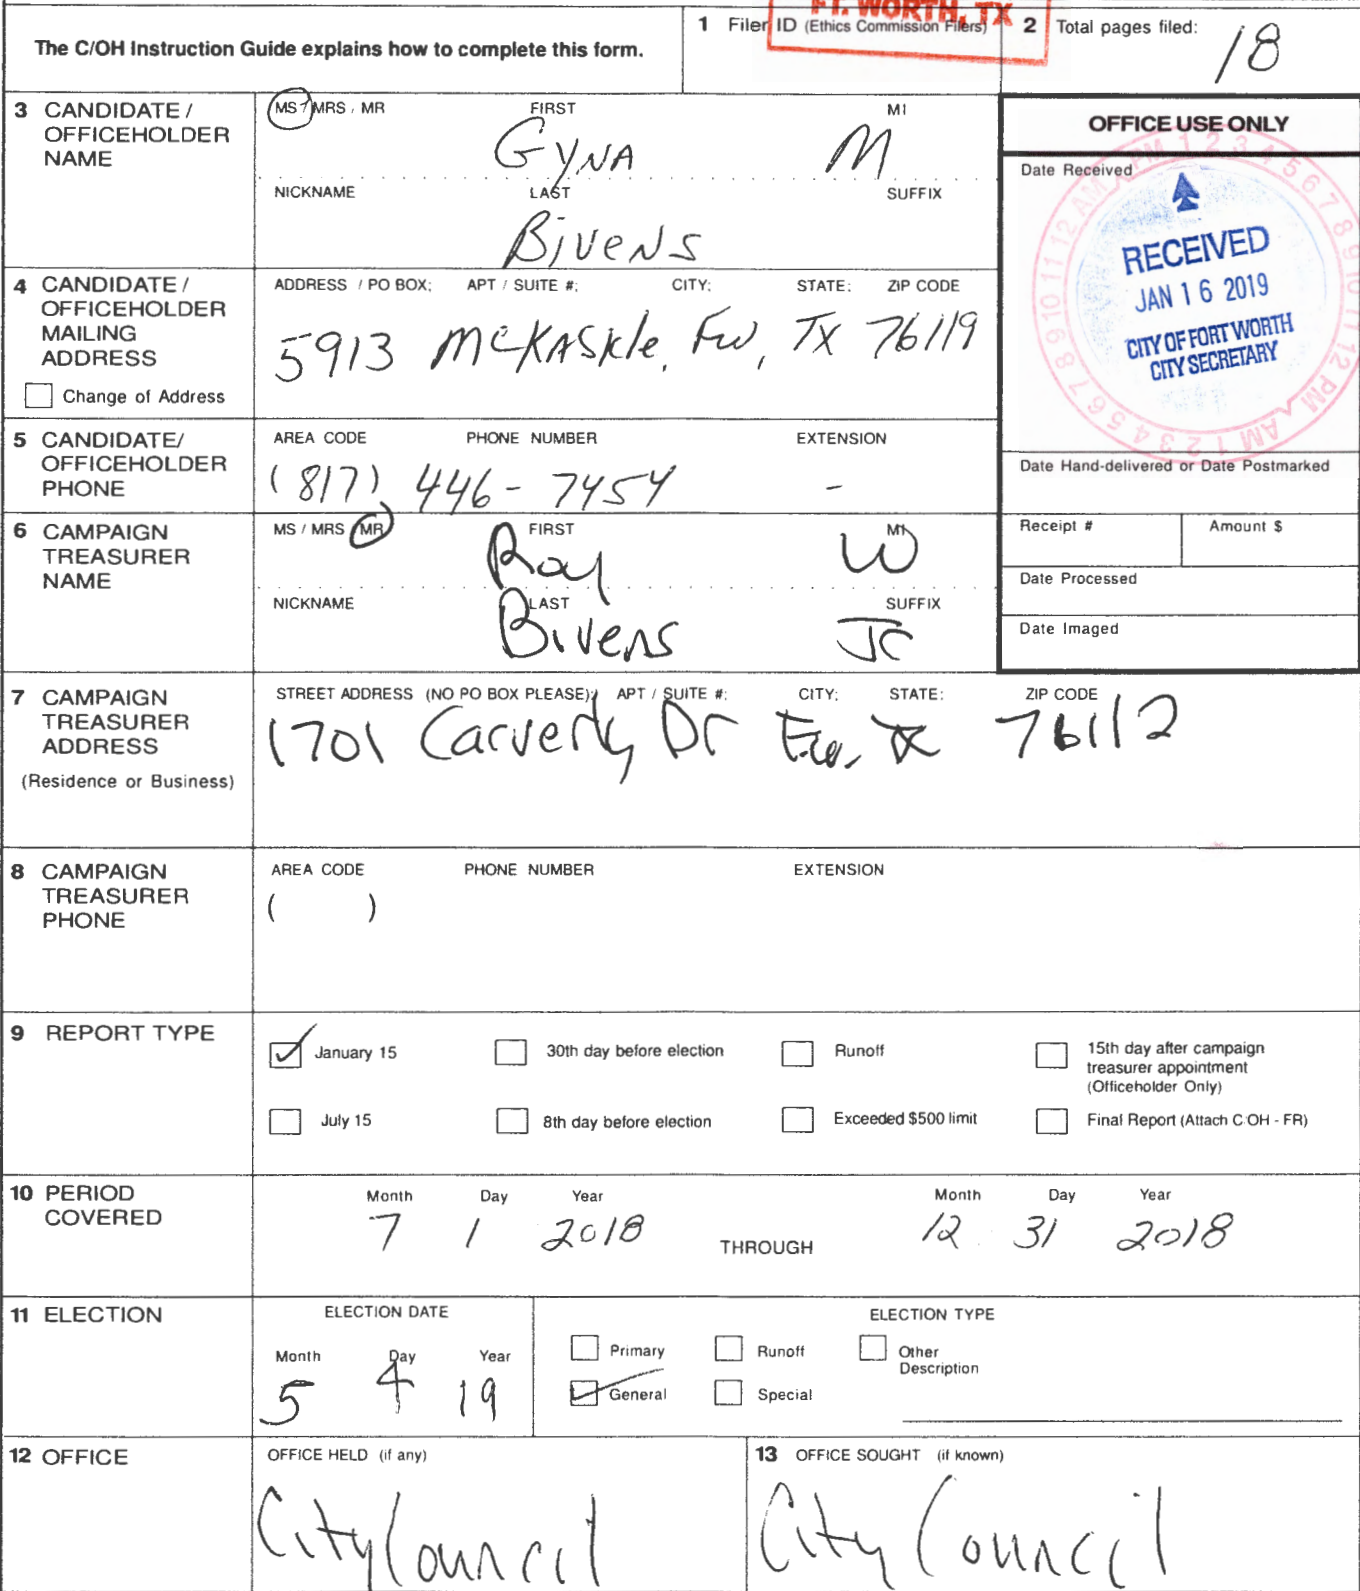 FT. WORTH, TX
The C/OH Instruction Guide explains how to complete this form.
1 Filer ID (Ethics Commission Filers)
2 Total pages filed:
18
3 CANDIDATE /
OFFICEHOLDER
NAME
MS / MRS / MR FIRST MI
GYNA M
NICKNAME LAST SUFFIX
Bivens
OFFICE USE ONLY
Date Received
RECEIVED
JAN 16 2019
CITY OF FORT WORTH
CITY SECRETARY
AM PM 1 2 3 4 5 6 7 8 9 10 11 12 PM AM 1 2 3 4 5 6 7 8 9 10 11 12
4 CANDIDATE /
OFFICEHOLDER
MAILING
ADDRESS
Change of Address
ADDRESS / PO BOX; APT / SUITE #; CITY; STATE; ZIP CODE
5913 McKASKle, FW, TX 76119
5 CANDIDATE/
OFFICEHOLDER
PHONE
AREA CODE PHONE NUMBER EXTENSION
(817) 446-7454 -
Date Hand-delivered or Date Postmarked
6 CAMPAIGN
TREASURER
NAME
MS / MRS / MR FIRST MI
Roy W
NICKNAME LAST SUFFIX
Bivens Jr
Receipt # Amount $
Date Processed
Date Imaged
7 CAMPAIGN
TREASURER
ADDRESS
(Residence or Business)
STREET ADDRESS (NO PO BOX PLEASE); APT / SUITE #; CITY; STATE; ZIP CODE
1701 Carverly Dr Fw, TX 76112
8 CAMPAIGN
TREASURER
PHONE
AREA CODE PHONE NUMBER EXTENSION
( )
9 REPORT TYPE
January 15 30th day before election Runoff 15th day after campaign
treasurer appointment
(Officeholder Only)
July 15 8th day before election Exceeded $500 limit Final Report (Attach C/OH - FR)
10 PERIOD
COVERED
Month Day Year Month Day Year
7 1 2018 THROUGH 12 31 2018
11 ELECTION
ELECTION DATE
Month Day Year
5 4 19
ELECTION TYPE
Primary Runoff Other
Description
General Special
12 OFFICE
OFFICE HELD (if any)
City Council
13 OFFICE SOUGHT (if known)
City Council